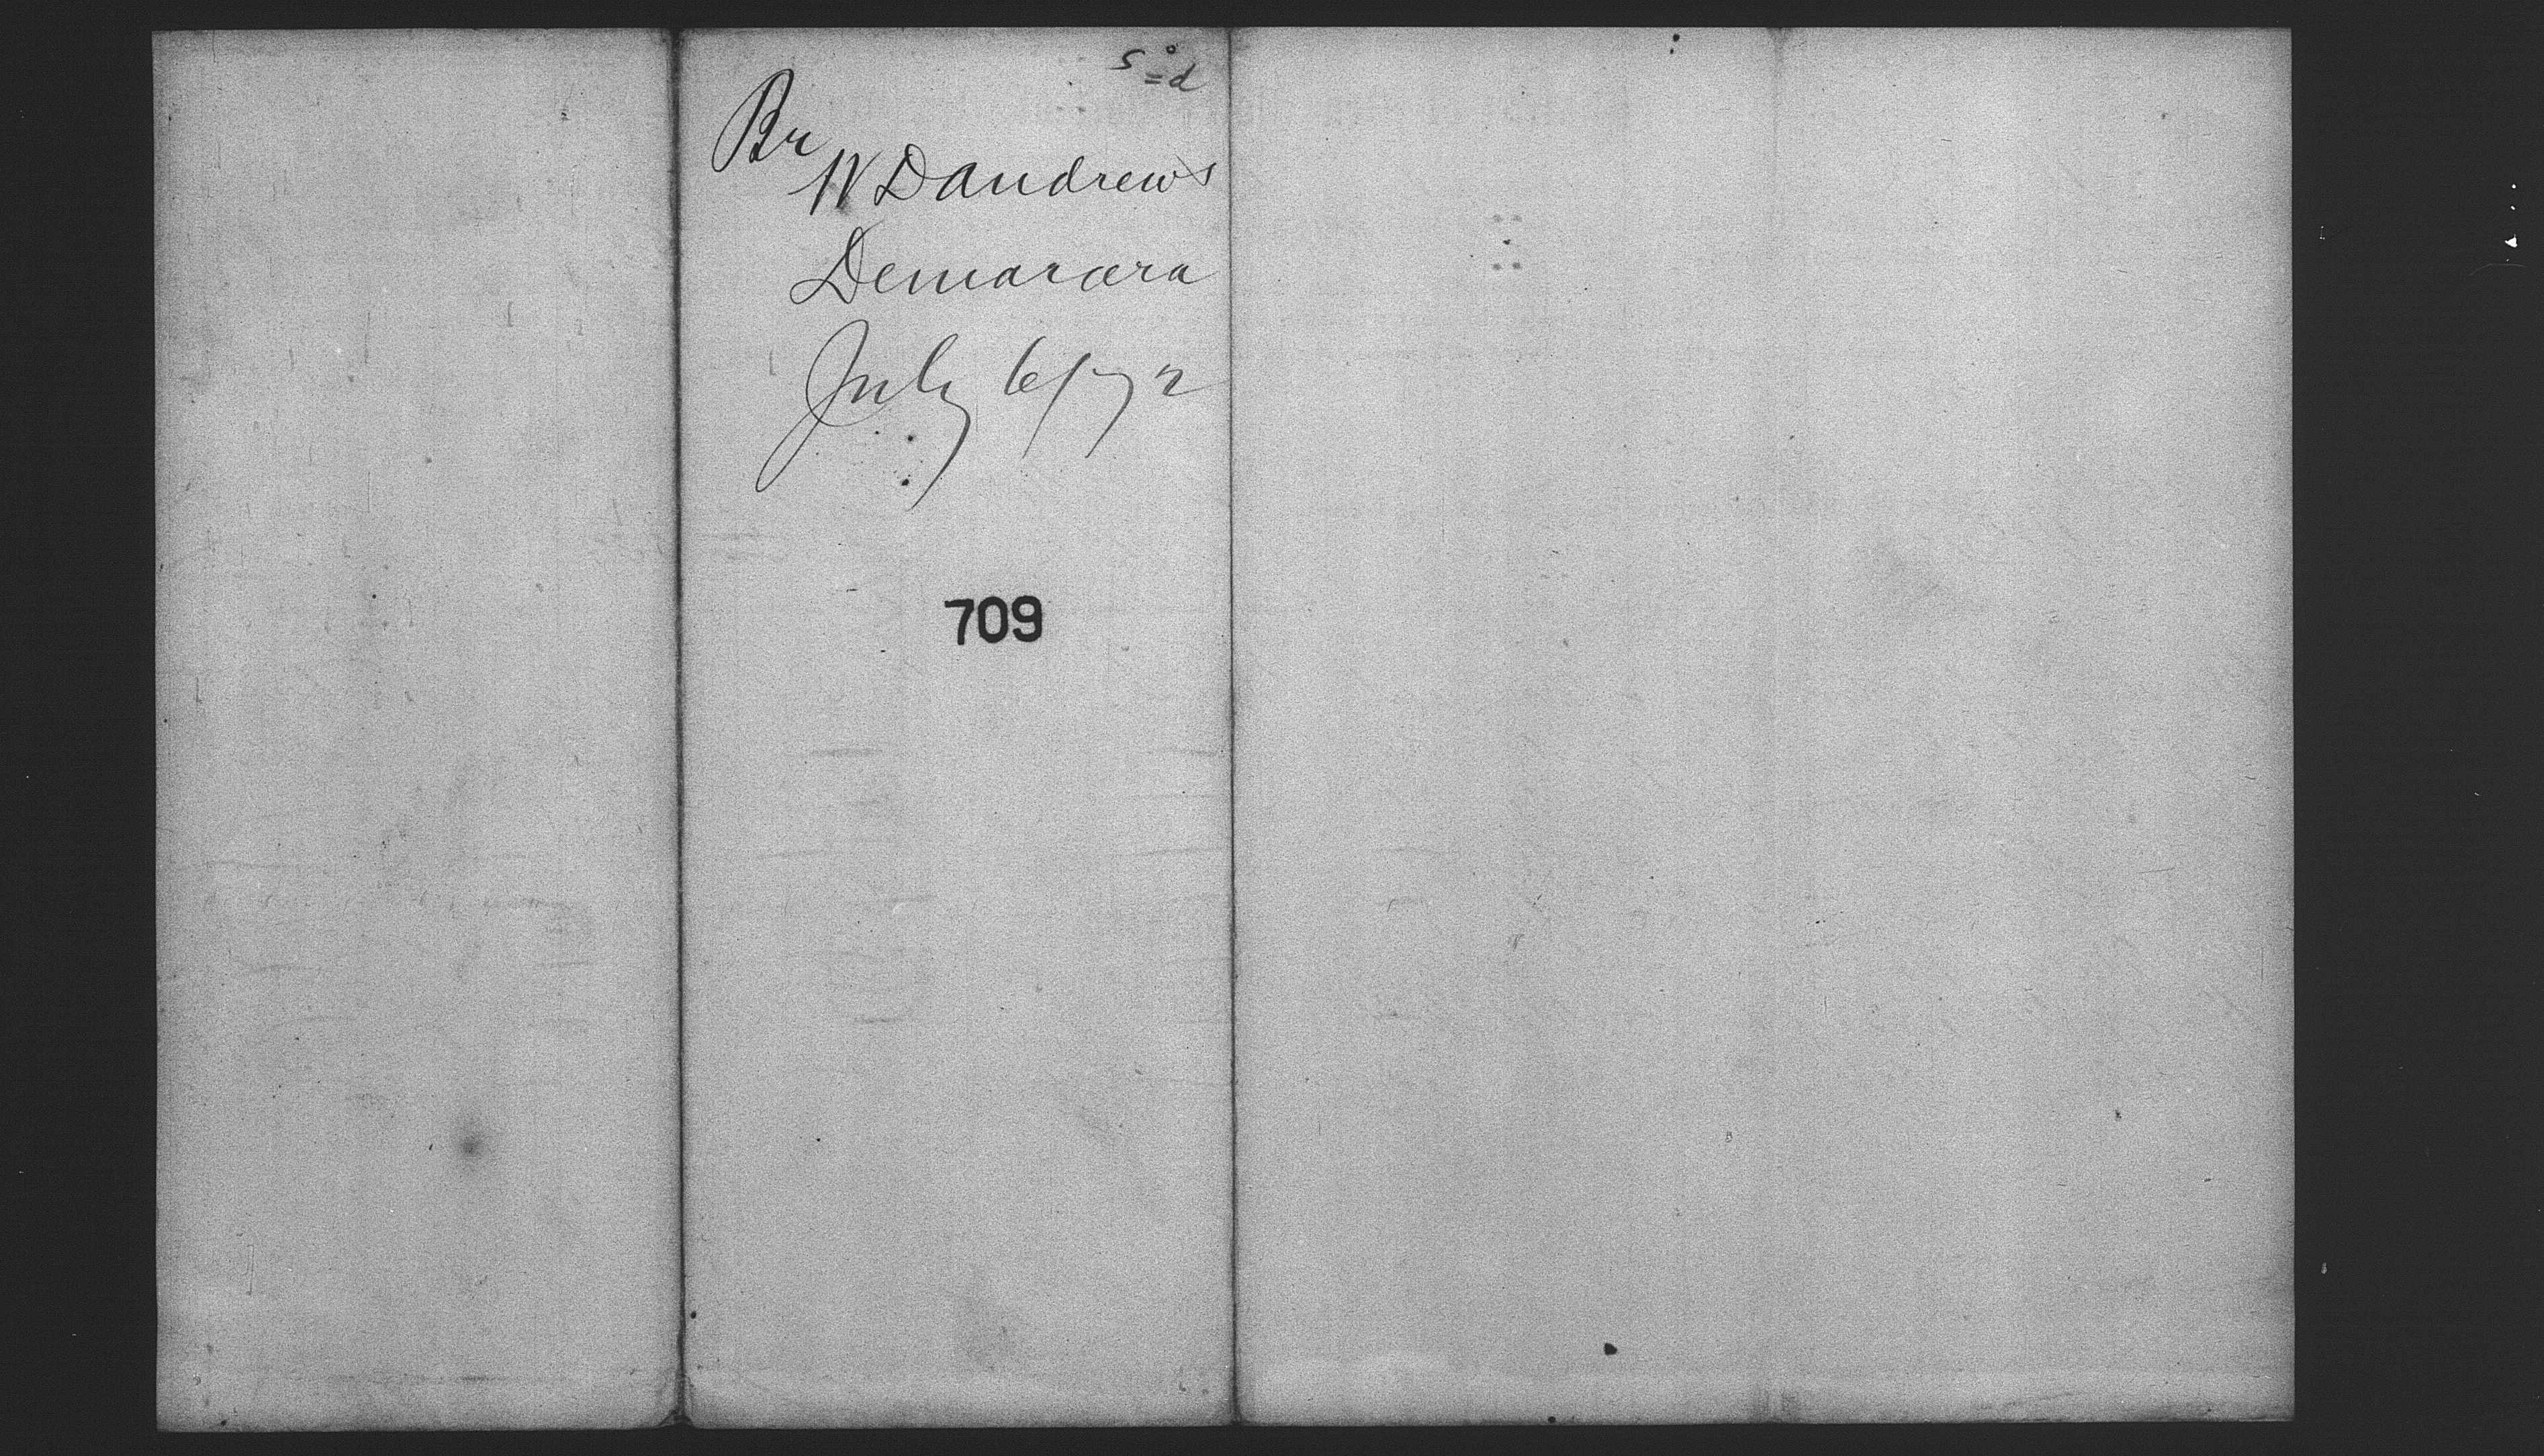 Br
W D Andrews
Demarara
July 6/72
709